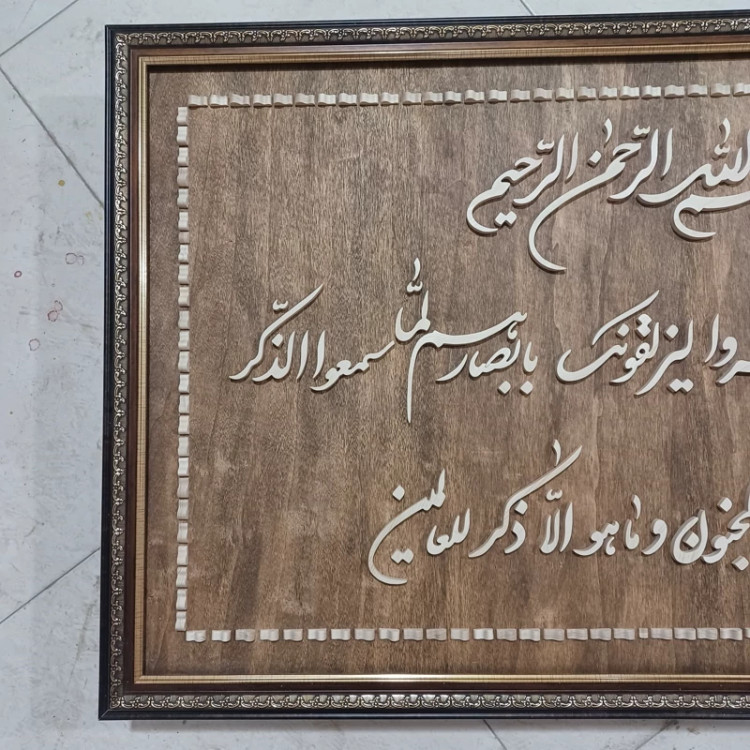 الله الرّحمٰن الرّحیم
لیزلقونک بابصارهم لمّا سمعوا الذّکر
وما هو الّا ذکر للعالمین